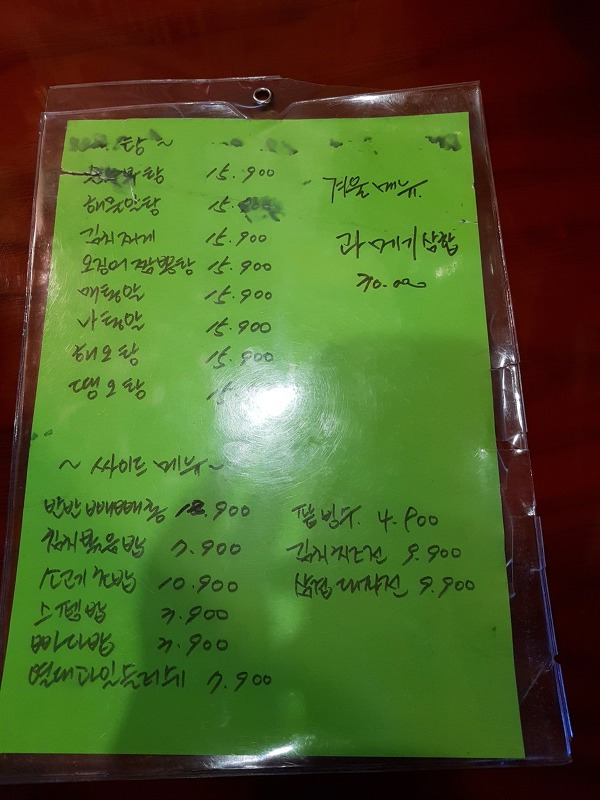 탕 ~
탕 15.900
해물알탕 15.
김치찌게 15.900
오징어짬뽕탕 15.900
매탕알 15.900
나탕알 15.900
해오탕 15.900
땡오탕 15
겨울메뉴
과메기삼합
30.000
~ 싸이드메뉴 ~
반반빼빼통 900
김치볶음밥 7.900
소고기초밥 10.900
스펨밥 3.900
빠다밥 3.900
열대과일 7.900
팥빙수 4.900
김치치즈전 9.900
삼겹대파전 9.900